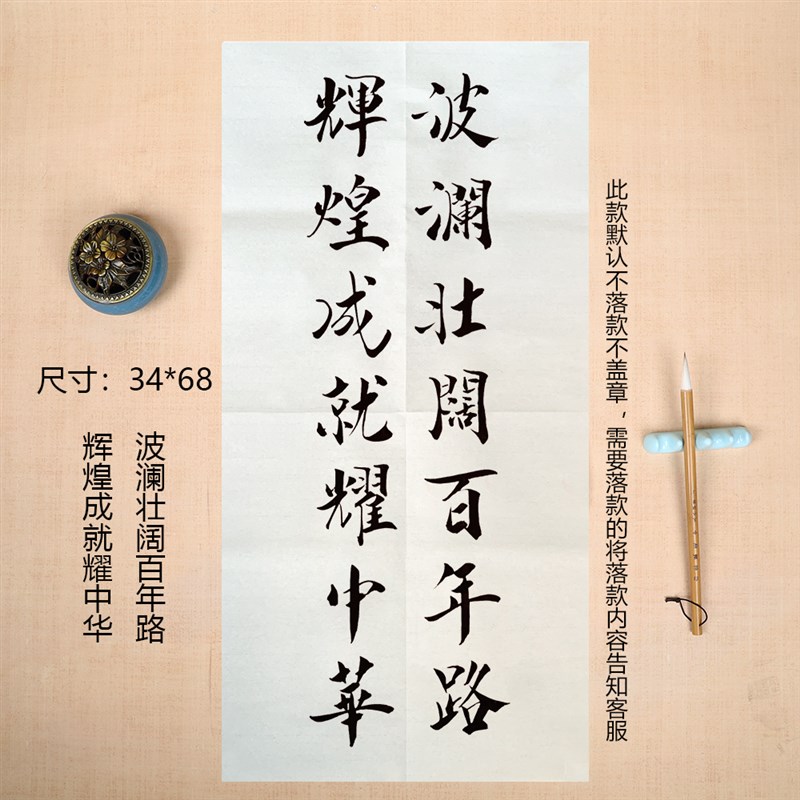 波瀾壯闊百年路
輝煌成就耀中華
此款默认不落款不盖章，需要落款的将落款内容告知客服
尺寸：34*68
波澜壮阔百年路
辉煌成就耀中华